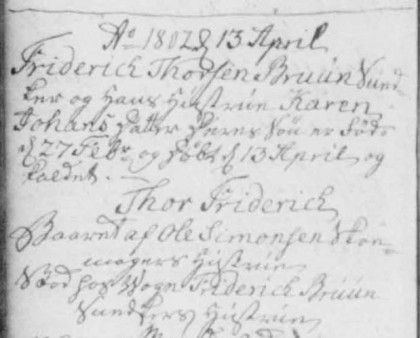 Ao 1802 d 13 April
Friderich Thorsen Bruün Sned-
ker og Hans Hustrue Karen
Johans Datter Deres Søn er Fød
d 27 Febr og Døbt d 13 April og
kaldet
Thor Friderich
Baaret af Ole Simonsen Skoe-
magers Hustrue
Stod hos Friderich Bruün
Snedkers Hustrue